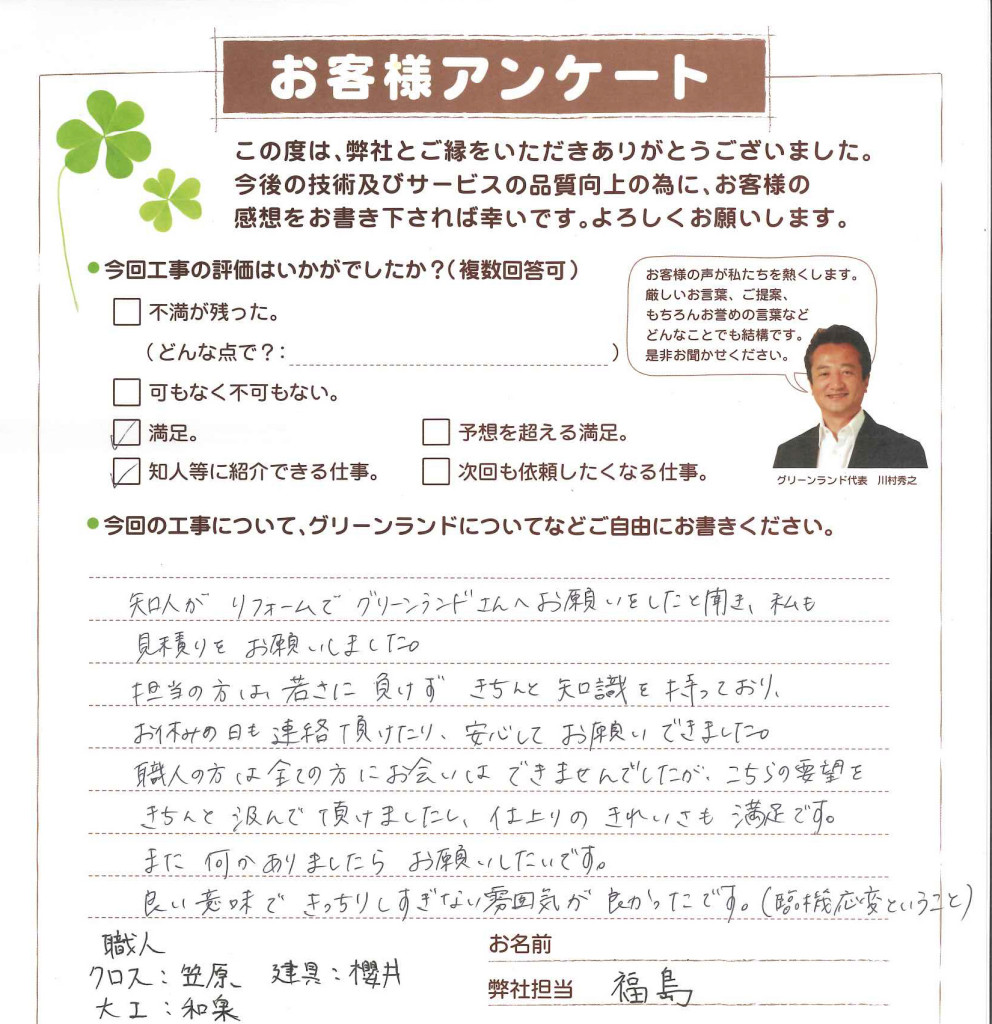 お客様アンケート
この度は、弊社とご縁をいただきありがとうございました。
今後の技術及びサービスの品質向上の為に、お客様の
感想をお書き下されば幸いです。よろしくお願いします。
●今回工事の評価はいかがでしたか？（複数回答可）
不満が残った。
（どんな点で？： ）
可もなく不可もない。
満足。
予想を超える満足。
知人等に紹介できる仕事。
次回も依頼したくなる仕事。
お客様の声が私たちを熱くします。
厳しいお言葉、ご提案、
もちろんお誉めの言葉など
どんなことでも結構です。
是非お聞かせください。
グリーンランド代表 川村秀之
●今回の工事について、グリーンランドについてなどご自由にお書きください。
知人が リフォームで グリーンランドさんへ お願いをしたと聞き、私も
見積りを お願いしました。
担当の方は、若さに 負けず きちんと 知識を 持っており、
お休みの日も 連絡 頂けたり、安心して お願いできました。
職人の方は全ての方にお会いは できませんでしたが、こちらの要望を
きちんと 汲んで 頂けましたし、仕上りの きれいさも 満足です。
また 何かありましたら お願いしたいです。
良い意味で きっちりしすぎない雰囲気が 良かったです。(臨機応変ということ)
職人
クロス：笠原 建具：櫻井
大工：和泉
お名前
弊社担当 福島